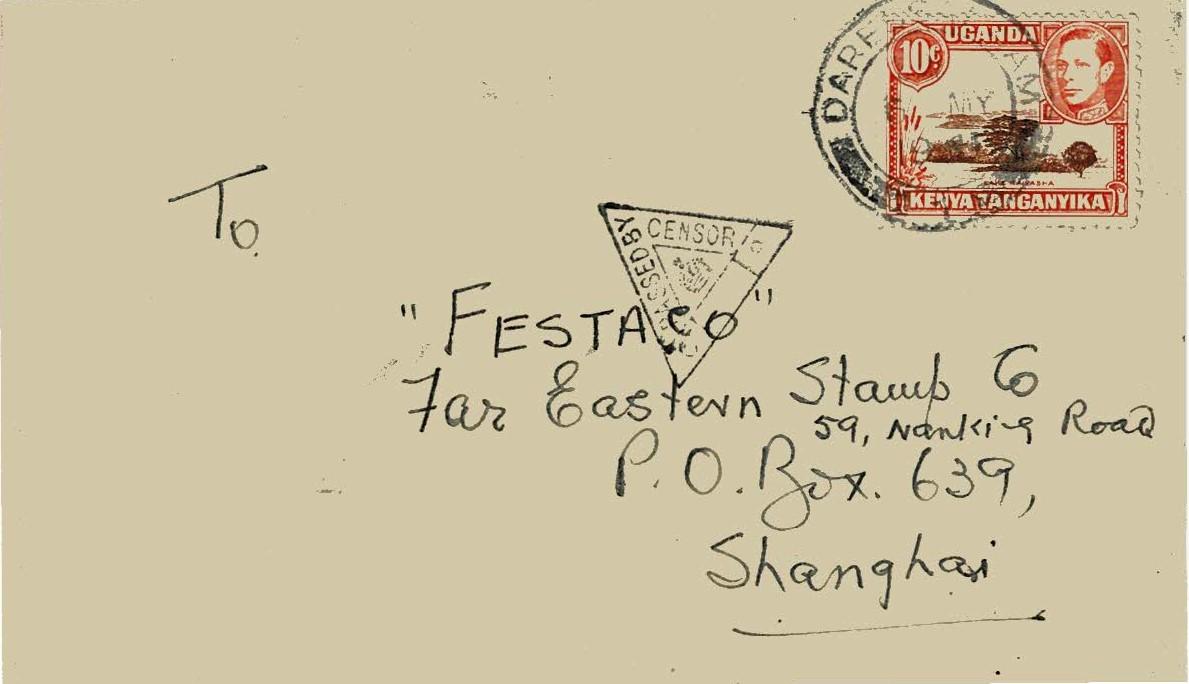 DARES SALAAM
MY
10c
UGANDA
LAKE NAIVASHA
KENYA TANGANYIKA
To
PASSED BY
CENSOR
"FESTACO"
Far Eastern Stamp Co
59, Nanking Road
P.O. Box. 639,
Shanghai